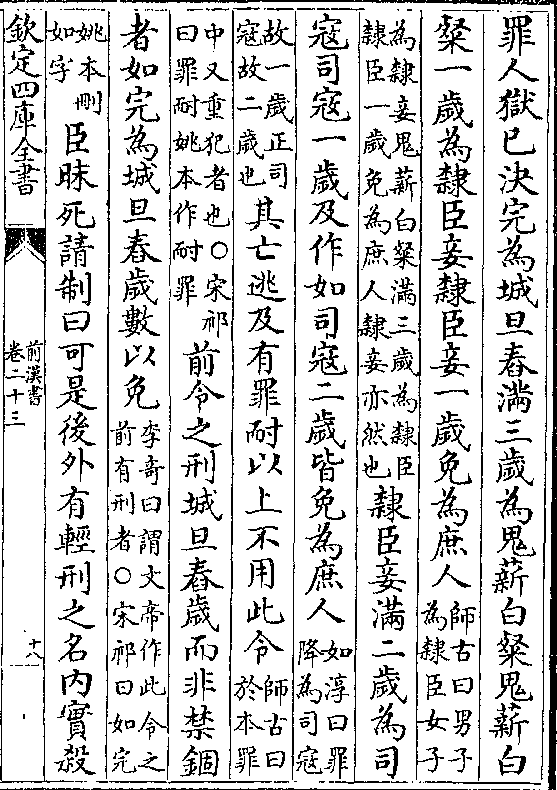 罪人獄已決完為城旦舂滿三歲為鬼薪白粲鬼薪白
粲一歲為隸臣妾隸臣妾一歲免為庶人師古曰男子為隸臣女子
為隸妾鬼薪白粲滿三歲為隸臣隸臣一歲免為庶人隸妾亦然也隸臣妾滿二歲為司
寇司寇一歲及作如司寇二歲皆免為庶人如淳曰罪降為司寇
故一歲正司寇故二歲也其亡逃及有罪耐以上不用此令師古曰於本罪
中又重犯者也○宋祁曰罪耐姚本作耐罪前令之刑城旦舂歲而非禁錮
者如完為城旦舂歲數以免李奇曰謂文帝作此令之前有刑者○宋祁曰如完
姚本刪如字臣昧死請制曰可是後外有輕刑之名內實殺
欽定四庫全書
前漢書
卷二十三
十八